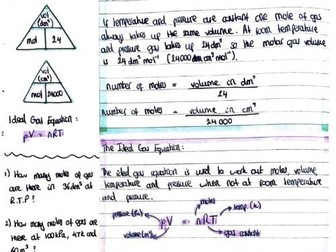 vol
(dm³)
mol
24
vol
(cm³)
mol
24000
Ideal Gas Equation:
pV = nRT
1) How many moles of gas
are there in 36dm³ at
R.T.P?
2) How many moles of gas are
there at 100kPa, 47°C and
If temperature and pressure are constant one mole of gas
always takes up the same volume. At room temperature
and pressure gas takes up 24dm³ so the molar gas volume
is 24dm³mol⁻¹
number of moles = volume in dm³
24
number of moles = volume in cm³
24000
The Ideal Gas Equation:
The ideal gas equation is used to work out moles, volume,
temperature and pressure when not at room temperature
and pressure.
pV = nRT
moles
gas constant